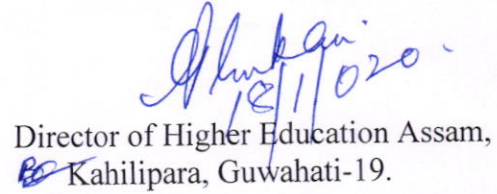 18/1/020
Director of Higher Education Assam,
Kahilipara, Guwahati-19.